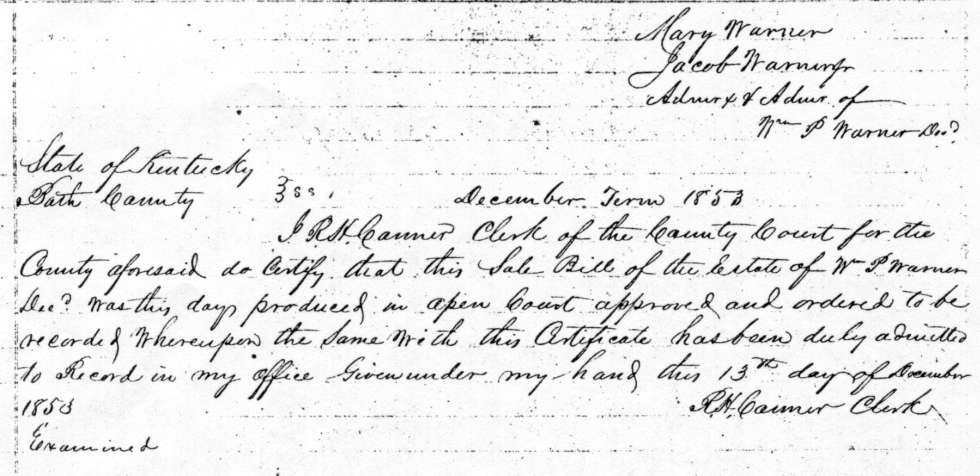 Mary Warner
Jacob Warner Jr
Admrx & Admr. of
Wm P Warner Decd
State of Kentucky
Bath County } ss. December Term 1853
I R.H. Conner Clerk of the County Court for the
County aforesaid do Certify that this Sale Bill of the Estate of Wm P Warner
Decd was this day produced in open Court approved and ordered to be
recorded Whereupon the Same With this Certificate has been duly admitted
to Record in my office Given under my hand this 13th day of December
1853 R.H. Conner Clerk
Examined